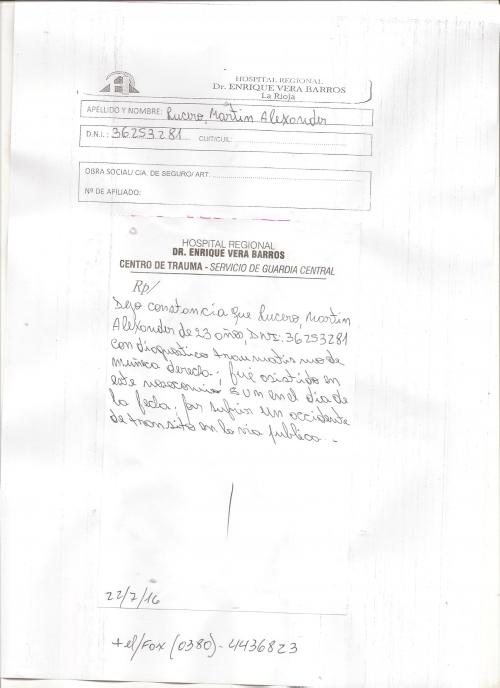 HOSPITAL REGIONAL
Dr. ENRIQUE VERA BARROS
La Rioja
APELLIDO Y NOMBRE: Lucero, Martin Alexander
D.N.I.: 36253281 CUIT/CUIL:
OBRA SOCIAL/ CIA. DE SEGURO/ ART:
Nº DE AFILIADO:
HOSPITAL REGIONAL
DR. ENRIQUE VERA BARROS
CENTRO DE TRAUMA - SERVICIO DE GUARDIA CENTRAL
Rp/
Dejo constancia que Lucero, Martin
Alexander de 23 años, DNI: 36253281
con diagnostico traumatismo de
muñeca derecha; fué asistido en
este nosocomio en el dia de
la fecha, por sufrir un accidente
de transito en la via publica.-
22/7/16
tel/Fax (0380)-4436823